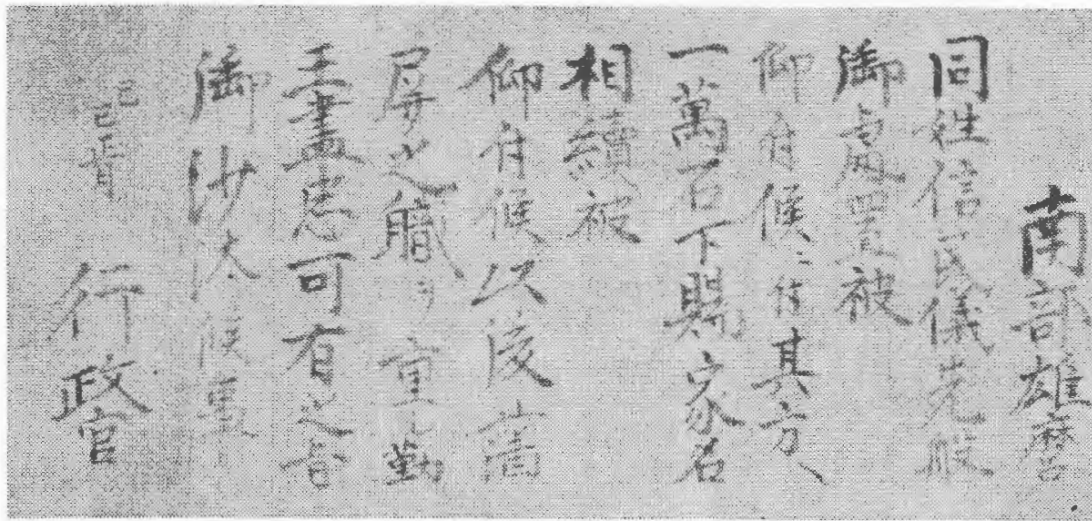 南部雄麿
同姓信民儀先般
御処置被
仰付候ニ付其方へ
一萬石下賜家名
相續被
仰付候以後藩
屏之職ヲ重勤
王盡忠可有之旨
御沙汰候事
行政官